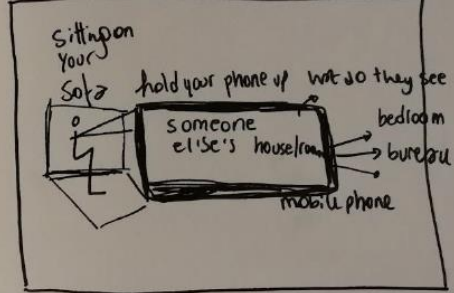 sitting on
your
sofa
hold your phone up what do they see
someone
else's house/room
bedroom
bureau
mobile phone